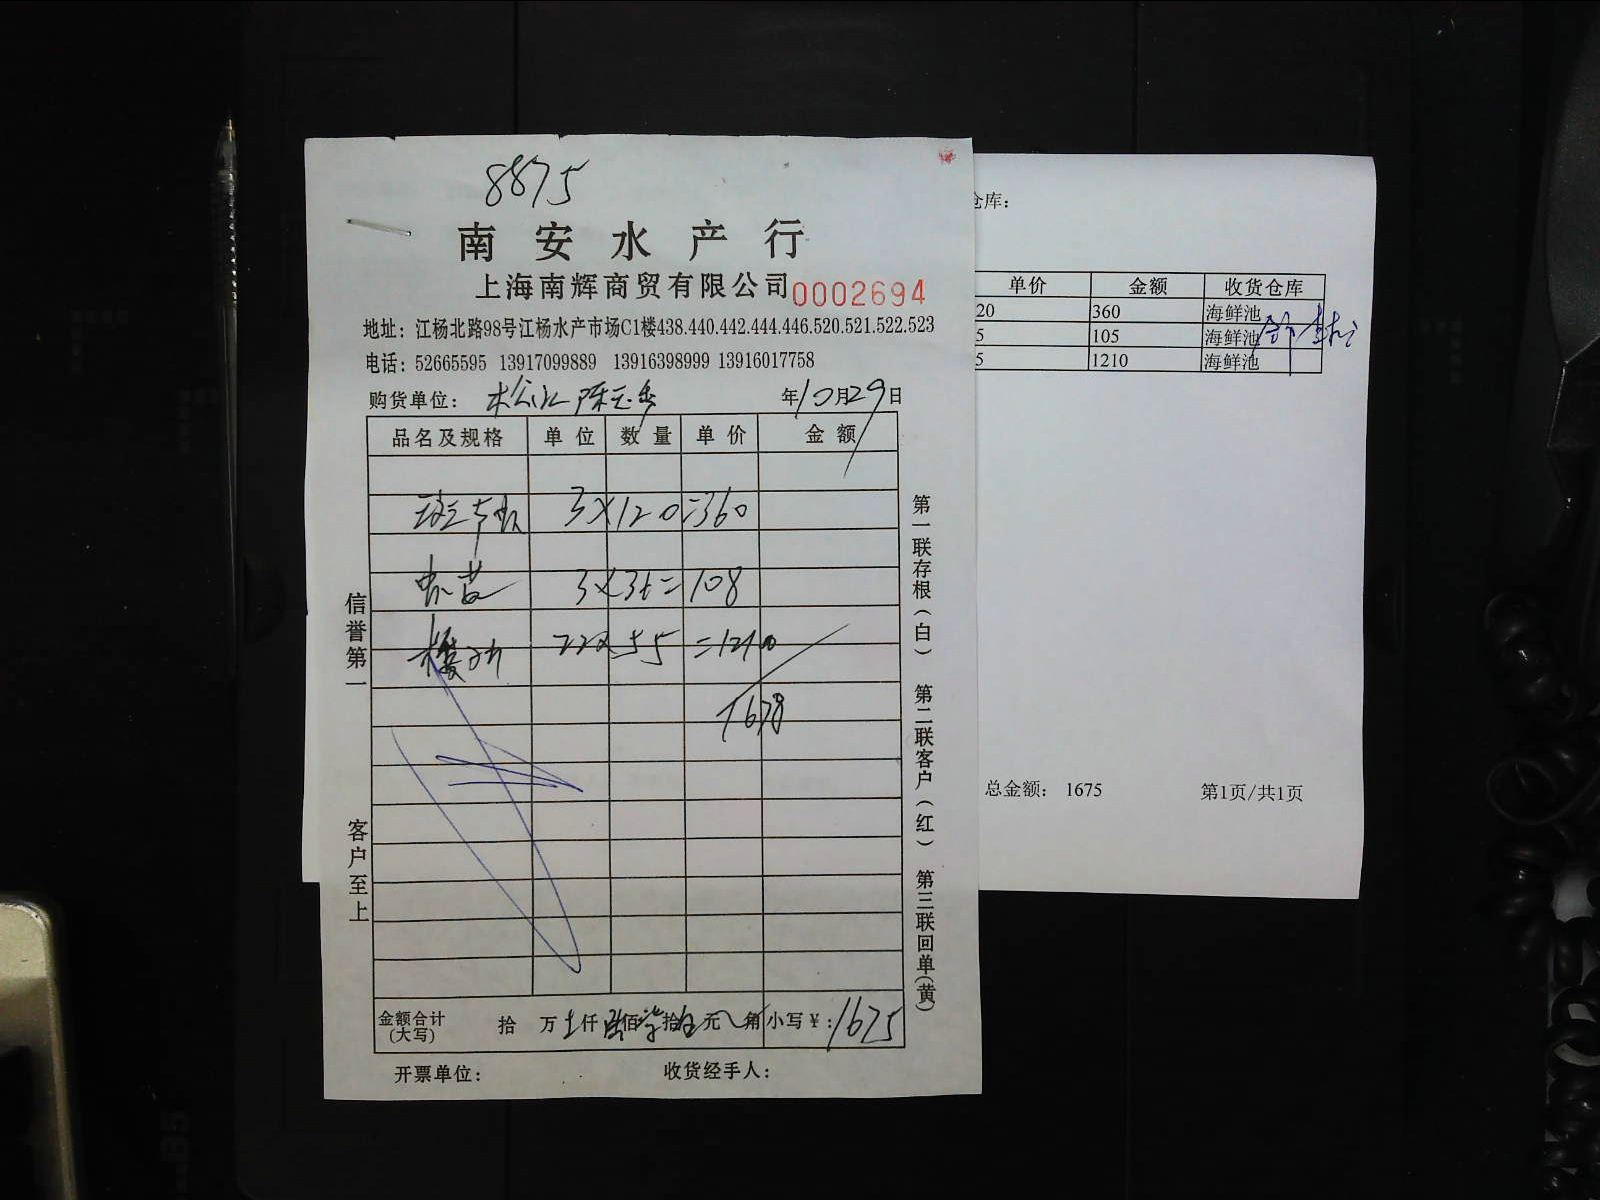 8875
南安水产行
上海南辉商贸有限公司 0002694
地址：江杨北路98号江杨水产市场C1楼438.440.442.444.446.520.521.522.523
电话：52665595 13917099889 13916398999 13916017758
购货单位： 年10月29日
品名及规格 单位 数量 单价 金额
3×120=360
=108
22×55=1210
1678
金额合计(大写) 拾 万 仟 佰 拾 元 角 小写￥：1675
开票单位： 收货经手人：
信誉第一 客户至上
第一联存根(白) 第二联客户(红) 第三联回单(黄)
仓库：
单价 金额 收货仓库
20 360 海鲜池
5 105 海鲜池
5 1210 海鲜池
总金额： 1675 第1页/共1页